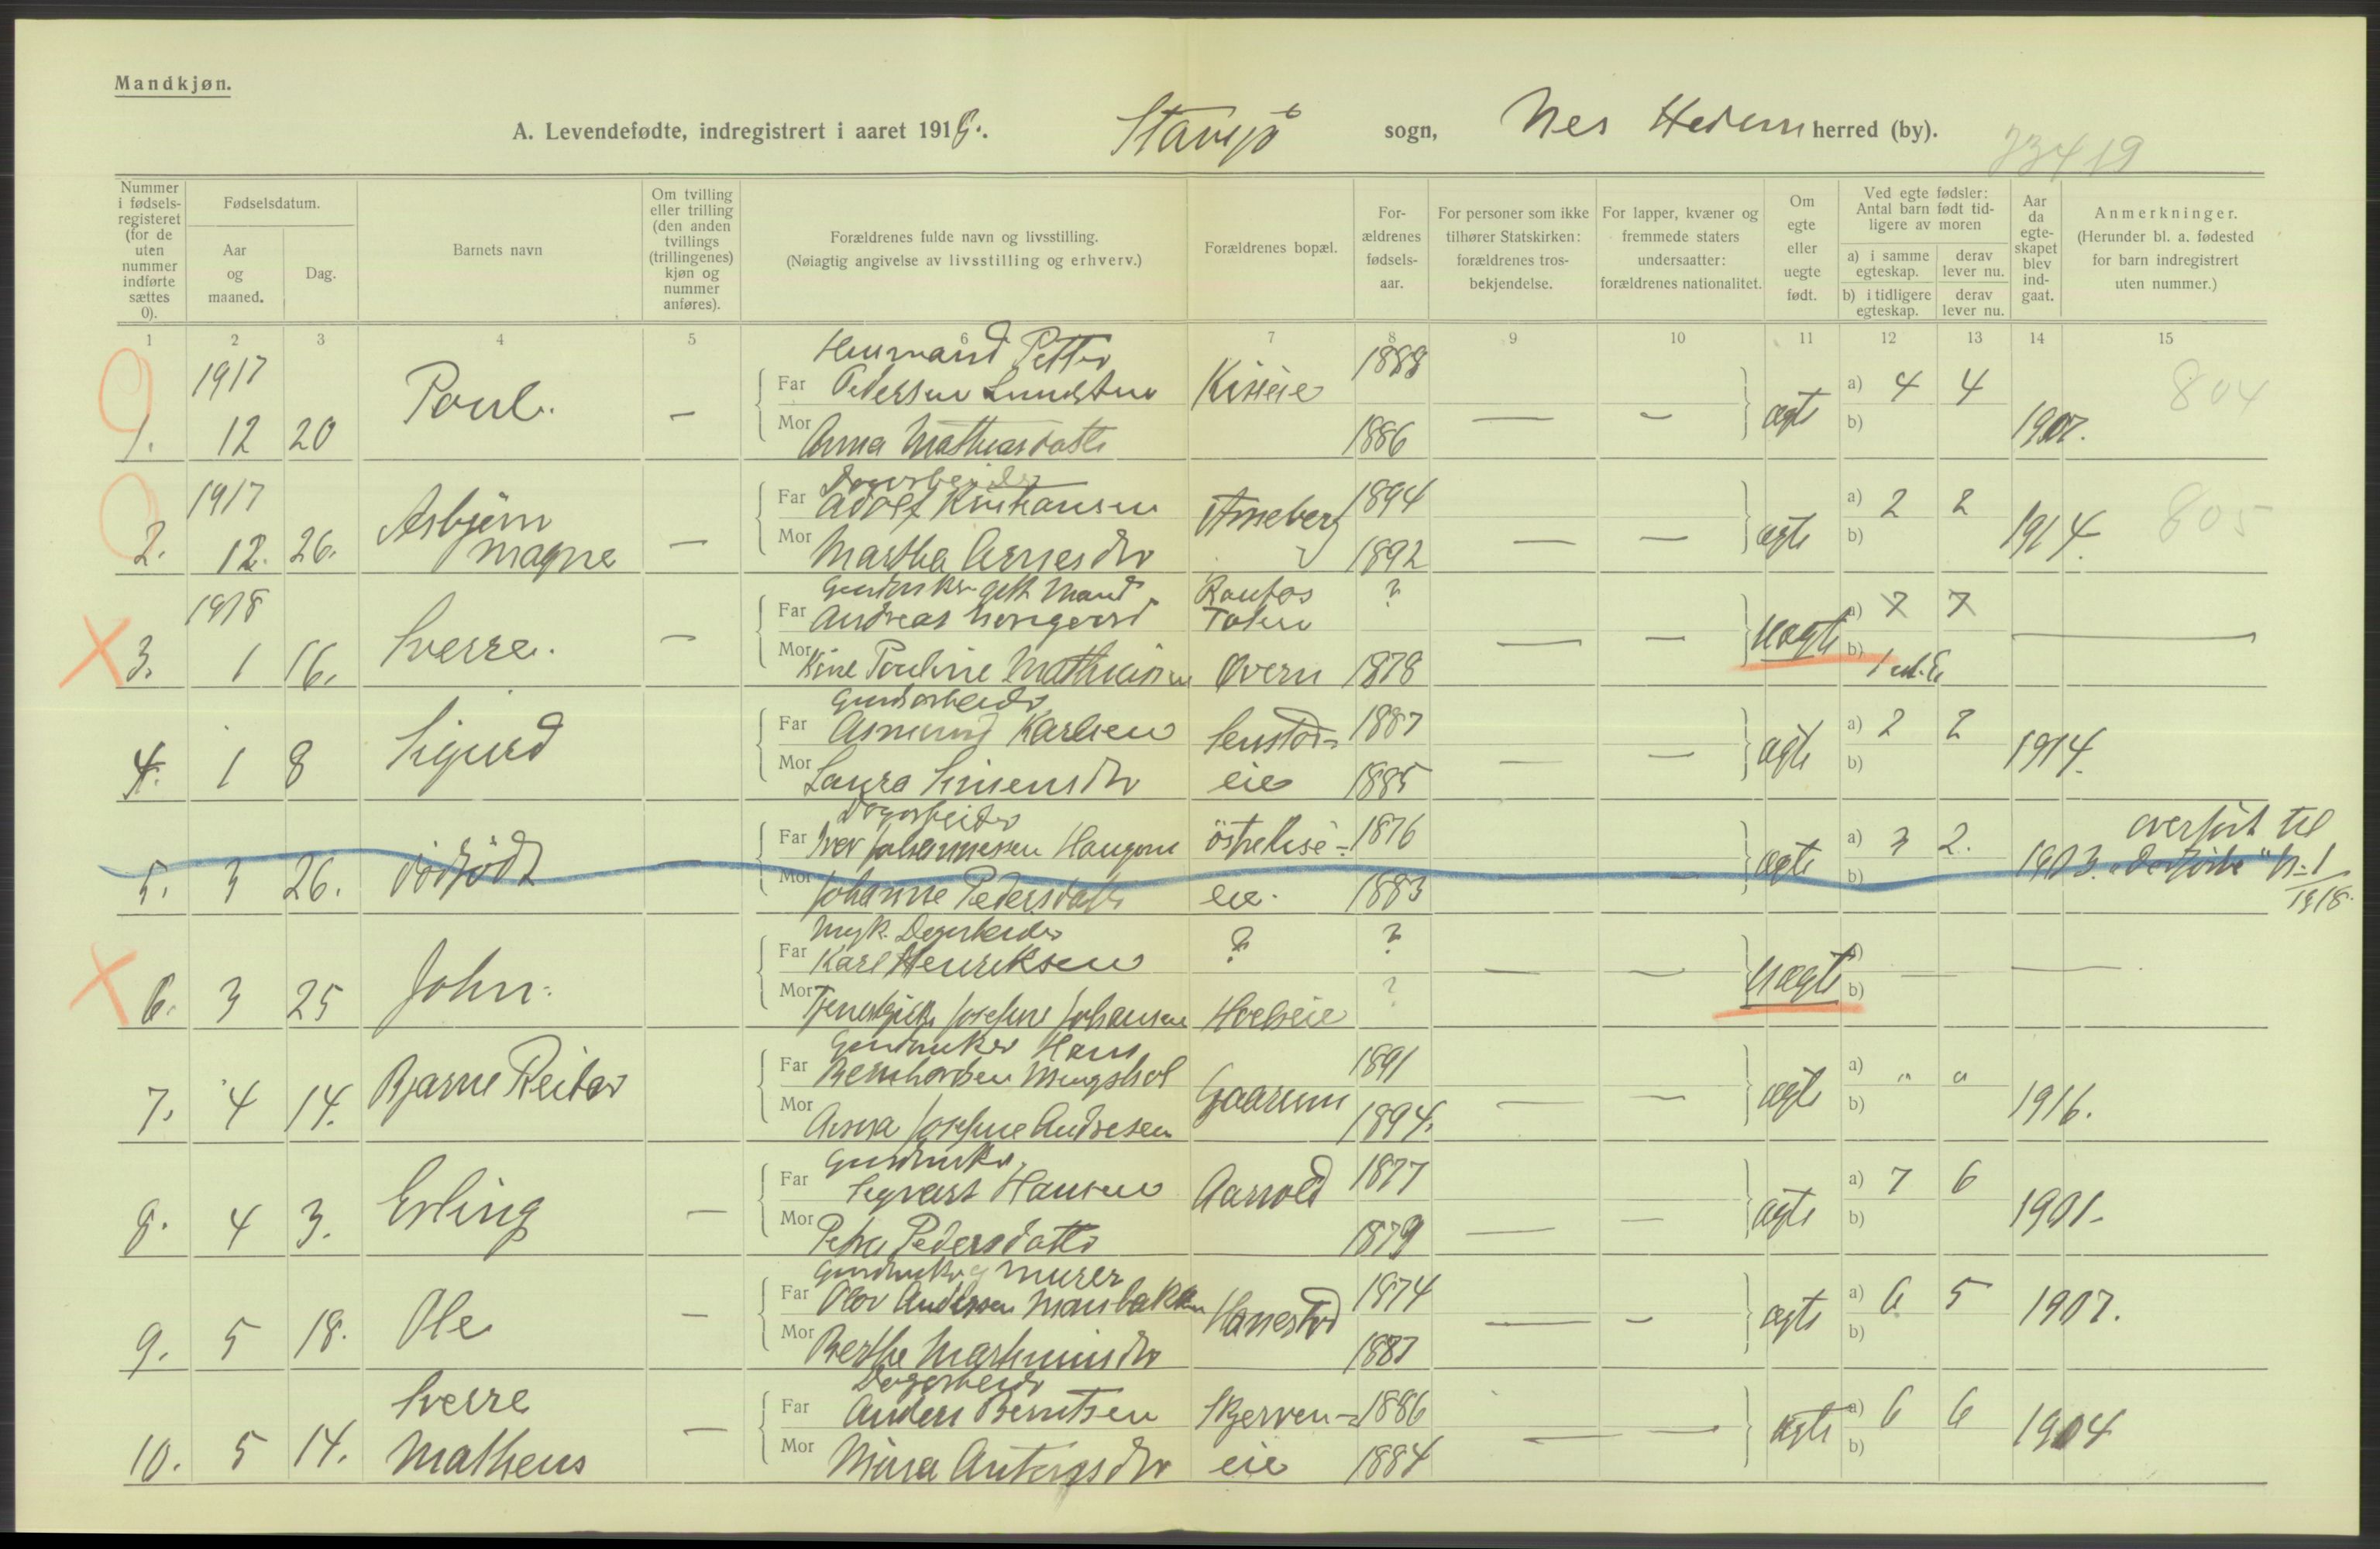 Mandkjøn.
A. Levendefødte, indregistrert i aaret 1918. Stavsjø sogn, Nes Hedem herred (by).
73419
Nummer i fødsels-registeret (for de uten nummer indførte sættes 0).
Fødselsdatum.
Aar og maaned.
Dag.
Barnets navn
Om tvilling eller trilling (den anden tvillings (trillingenes) kjøn og nummer anføres).
Forældrenes fulde navn og livsstilling.
(Nøiagtig angivelse av livsstilling og erhverv.)
Forældrenes bopæl.
For-ældrenes fødsels-aar.
For personer som ikke tilhører Statskirken: forældrenes tros-bekjendelse.
For lapper, kvæner og fremmede staters undersaatter: forældrenes nationalitet.
Om egte eller uegte født.
Ved egte fødsler: Antal barn født tid-ligere av moren
a) i samme egteskap.
derav lever nu.
b) i tidligere egteskap.
derav lever nu.
Aar da egte-skapet blev ind-gaat.
Anmerkninger.
(Herunder bl. a. fødested for barn indregistrert uten nummer.)
1 2 3 4 5 6 7 8 9 10 11 12 13 14 15
Husmand Petter
1917 Far Pedersen Lundsten Kiseie 1888 a) 4 4 804
1. 12 20 Poul. — Mor Anna Mathiasdatter 1886 — — ægte b) 1907.
Dagarbeider
1917 Far Adolf Kristiansen Arneberg 1894 a) 2 2 805
2. 12. 26. Asbjørn Magne — Mor Martha Arnesdtr 1892 — — ægte b) 1914.
Gaardbruker gift Mand Raufos ?
1918 Far Andreas Toten a) 7 7
3. 1 16. Sverre. — Mor Pauline Mathiasen Overn 1878 — — uægte b) 1
Gaardarbeider
Far Asmund Karlsen Senstad- 1887 a) 2 2
4. 1 8 Sigurd Mor Laura Simensdtr eie 1885 — — ægte b) 1914.
Dagarbeider
Far Iver Johannessen Haugom østre Kise- 1876 a) 3 2. overført til
5. 3 26. dødfødt Mor Johanne Pedersdatter eie. 1883 — — ægte b) 1903. "dødfødte" Nr 1/1918.
Ungk. Dagarbeider
Far Karl Henriksen ? ? a)
6. 3 25 John. Mor Tjenestepike Josefine Johansen Hoelseie ? — — uægte b) — —
Gaardbruker Hans
Far Bernhardsen Mengshol 1891 a) " "
7. 4 14. Bjarne Reidar Mor Anna Josefine Andresen Gaarum 1894. — — ægte b) 1916.
Gaardbruker
Far Sigvart Hansen Aarvold 1877 a) 7 6
8. 4 3. Erling — Mor Petra Pedersdatter 1879 — — ægte b) 1901.
Gaardbruker og murer
Far Olov Andersen Hanestad 1874 a) 6 5
9. 5 18. Ole — Mor Berthe Martiniusdtr 1887 — — ægte b) 1907.
Dagarbeider
Far Anders Berntsen Skjerven- 1886 a) 6 6
10. 5 14. Sverre Matheus — Mor Mina Antonsdtr eie 1884 — — ægte b) 1904